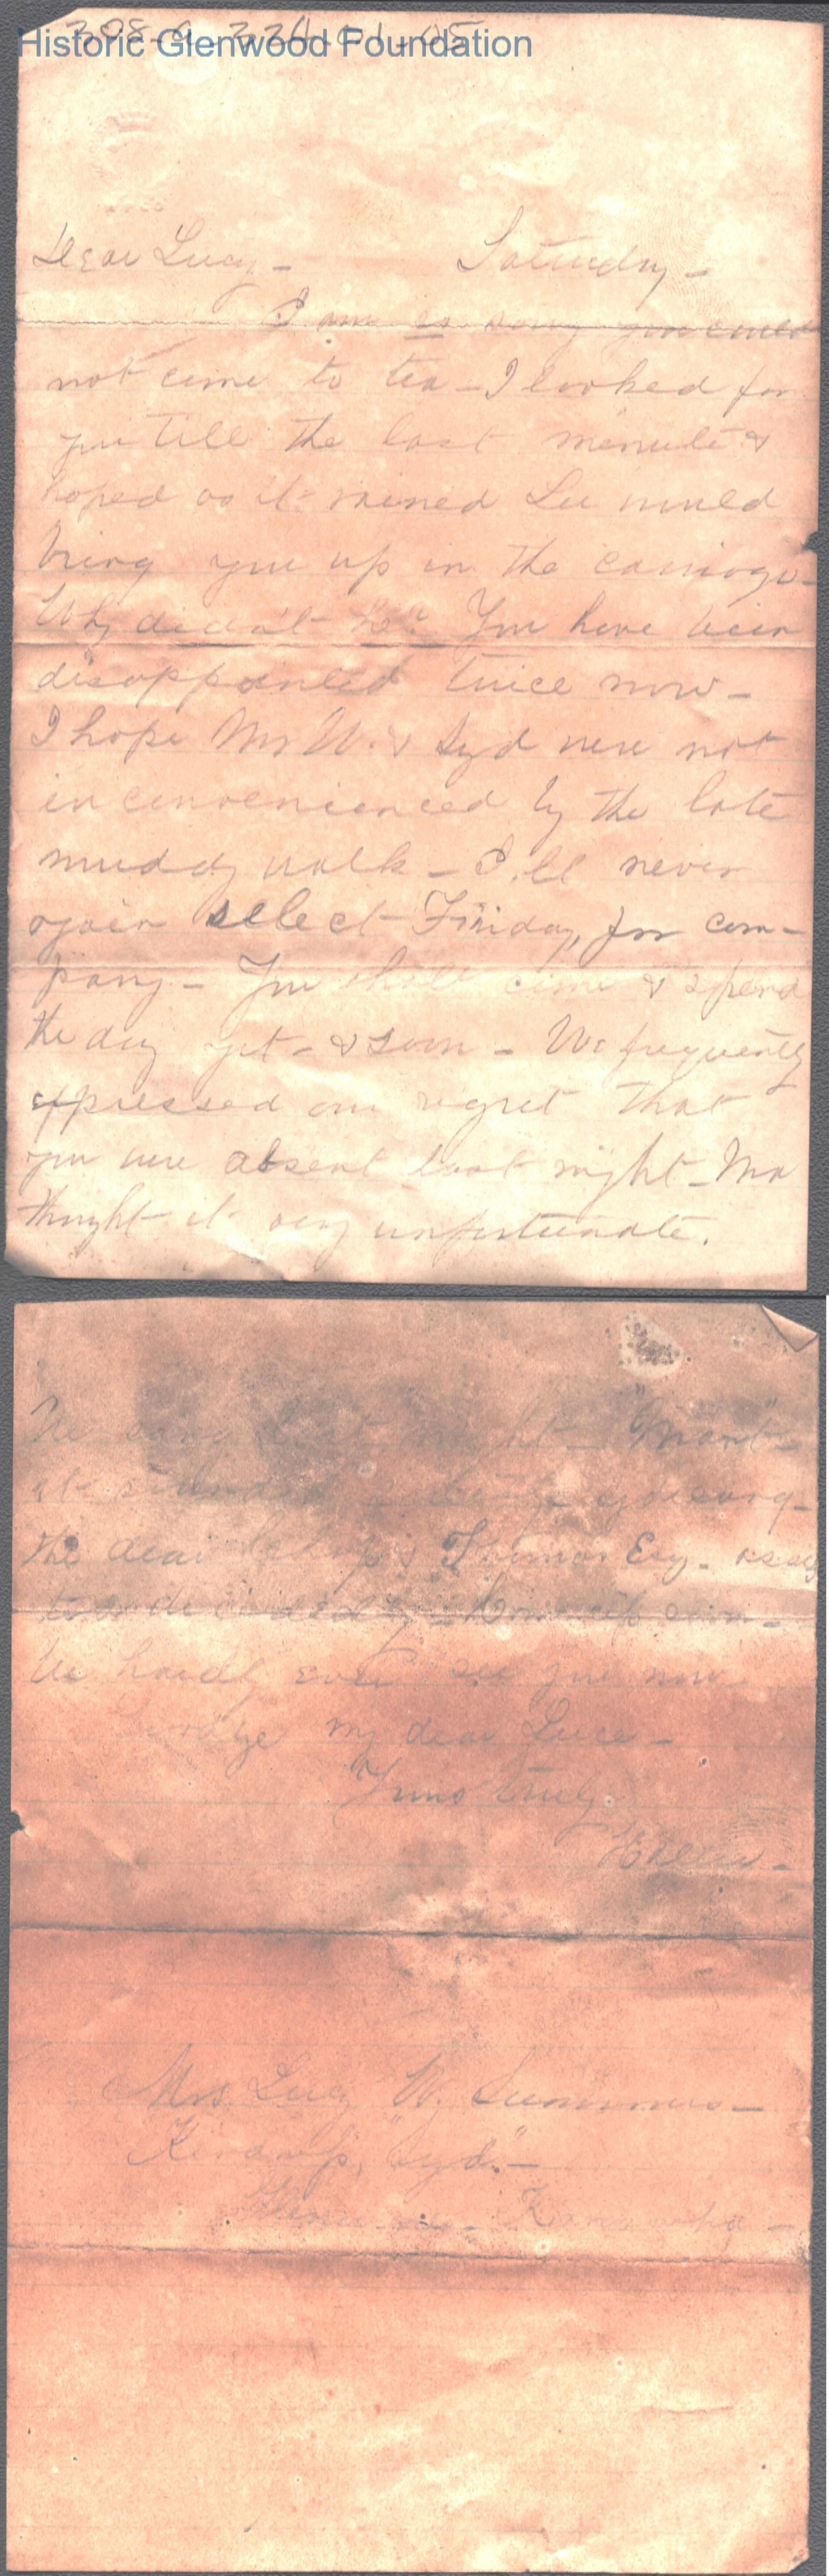 308-9 324-01-05
Historic Glenwood Foundation
Dear Lucy - Saturday -
I am so sorry you could
not come to tea - I looked for
you till the last minute &
hoped as it rained Lee would
bring you up in the carriage -
Why didn't he? You have been
disappointed twice now -
I hope Mr W. & Syd were not
inconvenienced by the late
muddy walk - I'll never
again select Friday, for com-
pany - You shall come & spend
the day yet - & soon - We frequently
expressed our regret that
you were absent last night - Ma
thought it very unfortunate.
We sang last night -
it sounded
the dear & Thomas Esq -
decidedly - Come up soon -
We hardly ever see you now
my dear Luce -
Yours truly.
Mrs. Lucy W. Summers -
"Syd." -
Kanawha -